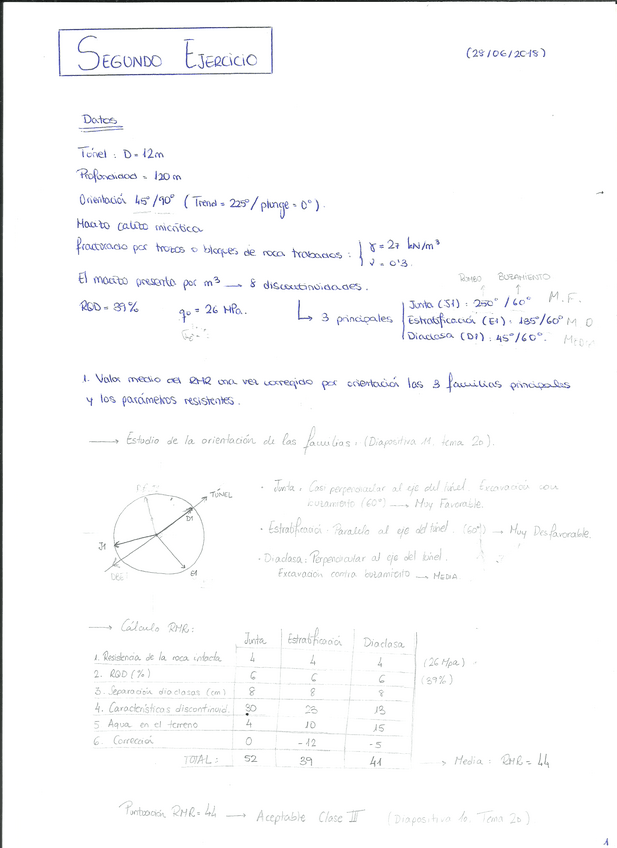 SEGUNDO EJERCICIO
(28/06/2018)
Datos
Túnel : D = 12m
Profundidad = 120m
Orientación 45°/90° (Trend = 225°/plunge = 0°).
Macizo calizo micrítica
fracturado por trozos o bloques de roca trabados : γ = 27 kN/m³
ν = 0'3.
El macizo presenta por m³ → 8 discontinuidades.
RQD = 39% q₀ = 26 MPa.
RUMBO BUZAMIENTO
3 principales
Junta (J1) : 250°/60° M.F.
Estratificación (E1) : 135°/60° M D
Diaclasa (D1) : 45°/60°.
1. Valor medio del RMR una vez corregido por orientación las 3 familias principales
y los parámetros resistentes.
→ Estudio de la orientación de las familias : (Diapositiva 11. tema 20).
TÚNEL
D1
J1
E1
· Junta : Casi perpendicular al eje del túnel. Excavación con
buzamiento (60°) → Muy Favorable.
· Estratificación : Paralelo al eje del túnel. (60°) → Muy Desfavorable.
· Diaclasa : Perpendicular al eje del túnel.
Excavación contra buzamiento → MEDIA
→ Cálculo RMR:
Junta Estratificación Diaclasa
1. Resistencia de la roca intacta 4 4 4 (26 Mpa)
2. RQD (%) 6 6 6 (39%)
3. Separación diaclasas (cm) 8 8 8
4. Características discontinuid. 30 23 13
5. Agua en el terreno 4 10 15
6. Corrección 0 -12 -5
TOTAL : 52 39 41 → Media : RMR = 44
Puntuación RMR = 44 → Aceptable Clase III (Diapositiva 10. Tema 20)
1